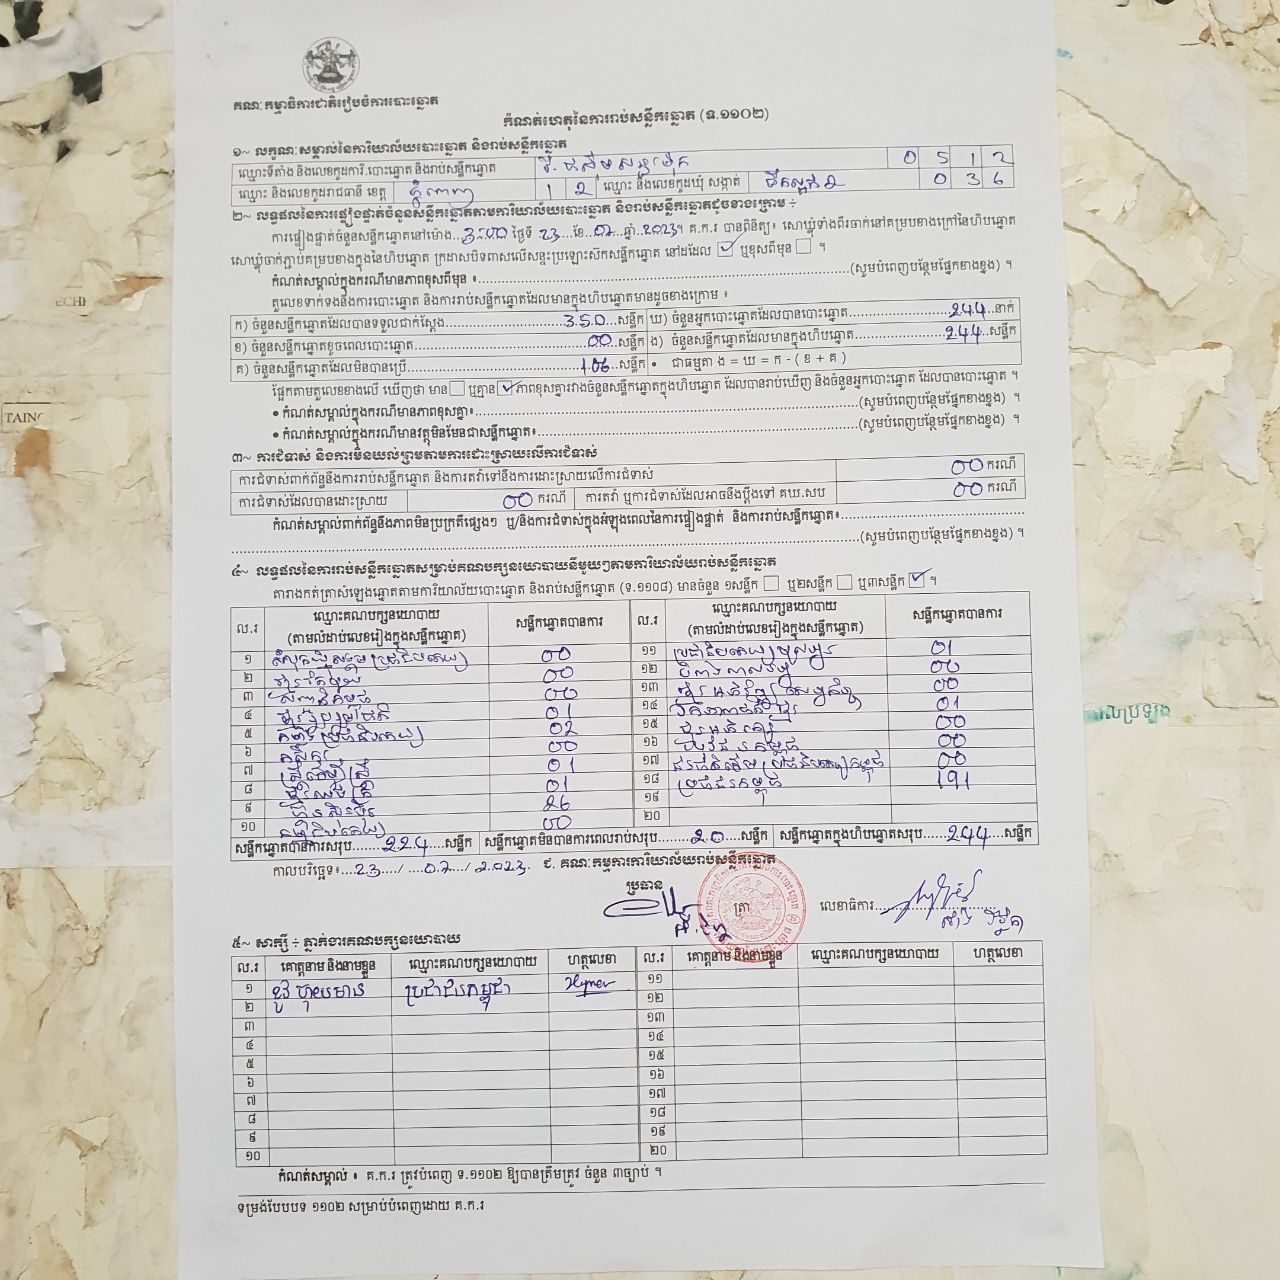 គណៈកម្មាធិការជាតិរៀបចំការបោះឆ្នោត
កំណត់ហេតុនៃការរាប់សន្លឹកឆ្នោត (ទ.១១០២)
១~ លក្ខណៈសម្គាល់នៃការិយាល័យបោះឆ្នោត និងរាប់សន្លឹកឆ្នោត
ឈ្មោះទីតាំង និងលេខកូដការិ.បោះឆ្នោត និងរាប់សន្លឹកឆ្នោត 0 5 1 2
ឈ្មោះ និងលេខកូដរាជធានី ខេត្ត ភ្នំពេញ 1 2 ឈ្មោះ និងលេខកូដឃុំ សង្កាត់ ទឹកល្អក់ 2 0 3 6
២~ លទ្ធផលនៃការផ្ទៀងផ្ទាត់ចំនួនសន្លឹកឆ្នោតតាមការិយាល័យបោះឆ្នោត និងរាប់សន្លឹកឆ្នោតដូចខាងក្រោម ÷
ការផ្ទៀងផ្ទាត់ចំនួនសន្លឹកឆ្នោតនៅម៉ោង 3:00 ថ្ងៃទី 23 ខែ 07 ឆ្នាំ 2023។ គ.ក.រ បានពិនិត្យ៖ សោឃ្លុំទាំងពីរចាក់នៅគម្របខាងក្រៅនៃហិបឆ្នោត
សោឃ្លុំចាក់ភ្ជាប់គម្របខាងក្នុងនៃហិបឆ្នោត ក្រដាសបិទពាសលើសន្ទះប្រឡោះស៊កសន្លឹកឆ្នោត នៅដដែល ✓ ឬខុសពីមុន ។
កំណត់សម្គាល់ក្នុងករណីមានភាពខុសពីមុន ៖ (សូមបំពេញបន្ថែមផ្នែកខាងខ្នង) ។
តួលេខទាក់ទងនឹងការបោះឆ្នោត និងការរាប់សន្លឹកឆ្នោតដែលមានក្នុងហិបឆ្នោតមានដូចខាងក្រោម ៖
ក) ចំនួនសន្លឹកឆ្នោតដែលបានទទួលជាក់ស្តែង 350 សន្លឹក ឃ) ចំនួនអ្នកបោះឆ្នោតដែលបានបោះឆ្នោត 244 នាក់
ខ) ចំនួនសន្លឹកឆ្នោតខូចពេលបោះឆ្នោត 00 សន្លឹក ង) ចំនួនសន្លឹកឆ្នោតដែលមានក្នុងហិបឆ្នោត 244 សន្លឹក
គ) ចំនួនសន្លឹកឆ្នោតដែលមិនបានប្រើ 106 សន្លឹក • ជាធម្មតា ង = ឃ = ក - ( ខ + គ )
ផ្អែកតាមតួលេខខាងលើ ឃើញថា មាន ឬគ្មាន ✓ ភាពខុសគ្នារវាងចំនួនសន្លឹកឆ្នោតក្នុងហិបឆ្នោត ដែលបានរាប់ឃើញ និងចំនួនអ្នកបោះឆ្នោត ដែលបានបោះឆ្នោត ។
• កំណត់សម្គាល់ក្នុងករណីមានភាពខុសគ្នា៖ (សូមបំពេញបន្ថែមផ្នែកខាងខ្នង) ។
• កំណត់សម្គាល់ក្នុងករណីមានវត្ថុមិនមែនជាសន្លឹកឆ្នោត៖ (សូមបំពេញបន្ថែមផ្នែកខាងខ្នង) ។
៣~ ការជំទាស់ និងការមិនយល់ព្រមតាមការដោះស្រាយលើការជំទាស់
ការជំទាស់ពាក់ព័ន្ធនឹងការរាប់សន្លឹកឆ្នោត និងការតវ៉ាទៅនឹងការដោះស្រាយលើការជំទាស់ 00 ករណី
ការជំទាស់ដែលបានដោះស្រាយ 00 ករណី ការតវ៉ា ឬការជំទាស់ដែលអាចនឹងប្តឹងទៅ គឃ.សប 00 ករណី
កំណត់សម្គាល់ពាក់ព័ន្ធនឹងភាពមិនប្រក្រតីផ្សេងៗ ឬ/និងការជំទាស់ក្នុងអំឡុងពេលនៃការផ្ទៀងផ្ទាត់ និងការរាប់សន្លឹកឆ្នោត៖
(សូមបំពេញបន្ថែមផ្នែកខាងខ្នង) ។
៤~ លទ្ធផលនៃការរាប់សន្លឹកឆ្នោតសម្រាប់គណបក្សនយោបាយនីមួយៗតាមការិយាល័យរាប់សន្លឹកឆ្នោត
តារាងកត់ត្រាសំឡេងឆ្នោតតាមការិយាល័យបោះឆ្នោត និងរាប់សន្លឹកឆ្នោត (ទ.១១០៨) មានចំនួន ១សន្លឹក ឬ២សន្លឹក ឬ៣សន្លឹក ✓ ។
ល.រ ឈ្មោះគណបក្សនយោបាយ (តាមលំដាប់លេខរៀងក្នុងសន្លឹកឆ្នោត) សន្លឹកឆ្នោតបានការ ល.រ ឈ្មោះគណបក្សនយោបាយ (តាមលំដាប់លេខរៀងក្នុងសន្លឹកឆ្នោត) សន្លឹកឆ្នោតបានការ
១ សំបុកឃ្មុំសង្គមប្រជាធិបតេយ្យ 00 ១១ 01
២ ខ្មែរតែមួយ 00 ១២ 00
៣ 00 ១៣ 00
៤ 01 ១៤ 01
៥ កម្លាំងប្រជាធិបតេយ្យ 02 ១៥ 00
៦ កសិករ 00 ១៦ យុវជនកម្ពុជា 00
៧ ស្ត្រីដើម្បីស្ត្រី 01 ១៧ 00
៨ 01 ១៨ ប្រជាជនកម្ពុជា 191
៩ ហ៊្វុនស៊ិនប៉ិច 26 ១៩
១០ 00 ២០
សន្លឹកឆ្នោតបានការសរុប 224 សន្លឹក សន្លឹកឆ្នោតមិនបានការពេលរាប់សរុប 20 សន្លឹក សន្លឹកឆ្នោតក្នុងហិបឆ្នោតសរុប 244 សន្លឹក
កាលបរិច្ឆេទ៖ 23 / 07 / 2023. ជ. គណៈកម្មការការិយាល័យរាប់សន្លឹកឆ្នោត
ប្រធាន
ត្រា លេខាធិការ
៥~ សាក្សី ÷ ភ្នាក់ងារគណបក្សនយោបាយ
ល.រ គោត្តនាម និងនាមខ្លួន ឈ្មោះគណបក្សនយោបាយ ហត្ថលេខា ល.រ គោត្តនាម និងនាមខ្លួន ឈ្មោះគណបក្សនយោបាយ ហត្ថលេខា
១ ប្រជាជនកម្ពុជា ១១
២ ១២
៣ ១៣
៤ ១៤
៥ ១៥
៦ ១៦
៧ ១៧
៨ ១៨
៩ ១៩
១០ ២០
កំណត់សម្គាល់ ៖ គ.ក.រ ត្រូវបំពេញ ទ.១១០២ ឱ្យបានត្រឹមត្រូវ ចំនួន ៣ច្បាប់ ។
ទម្រង់បែបបទ ១១០២ សម្រាប់បំពេញដោយ គ.ក.រ